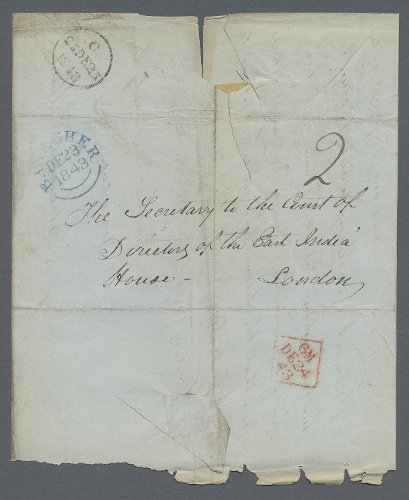 C
25DE23
1843
DE23
1843
2
The Secretary to the Court of
Directors of the East India
House - London
GM
DE24
43